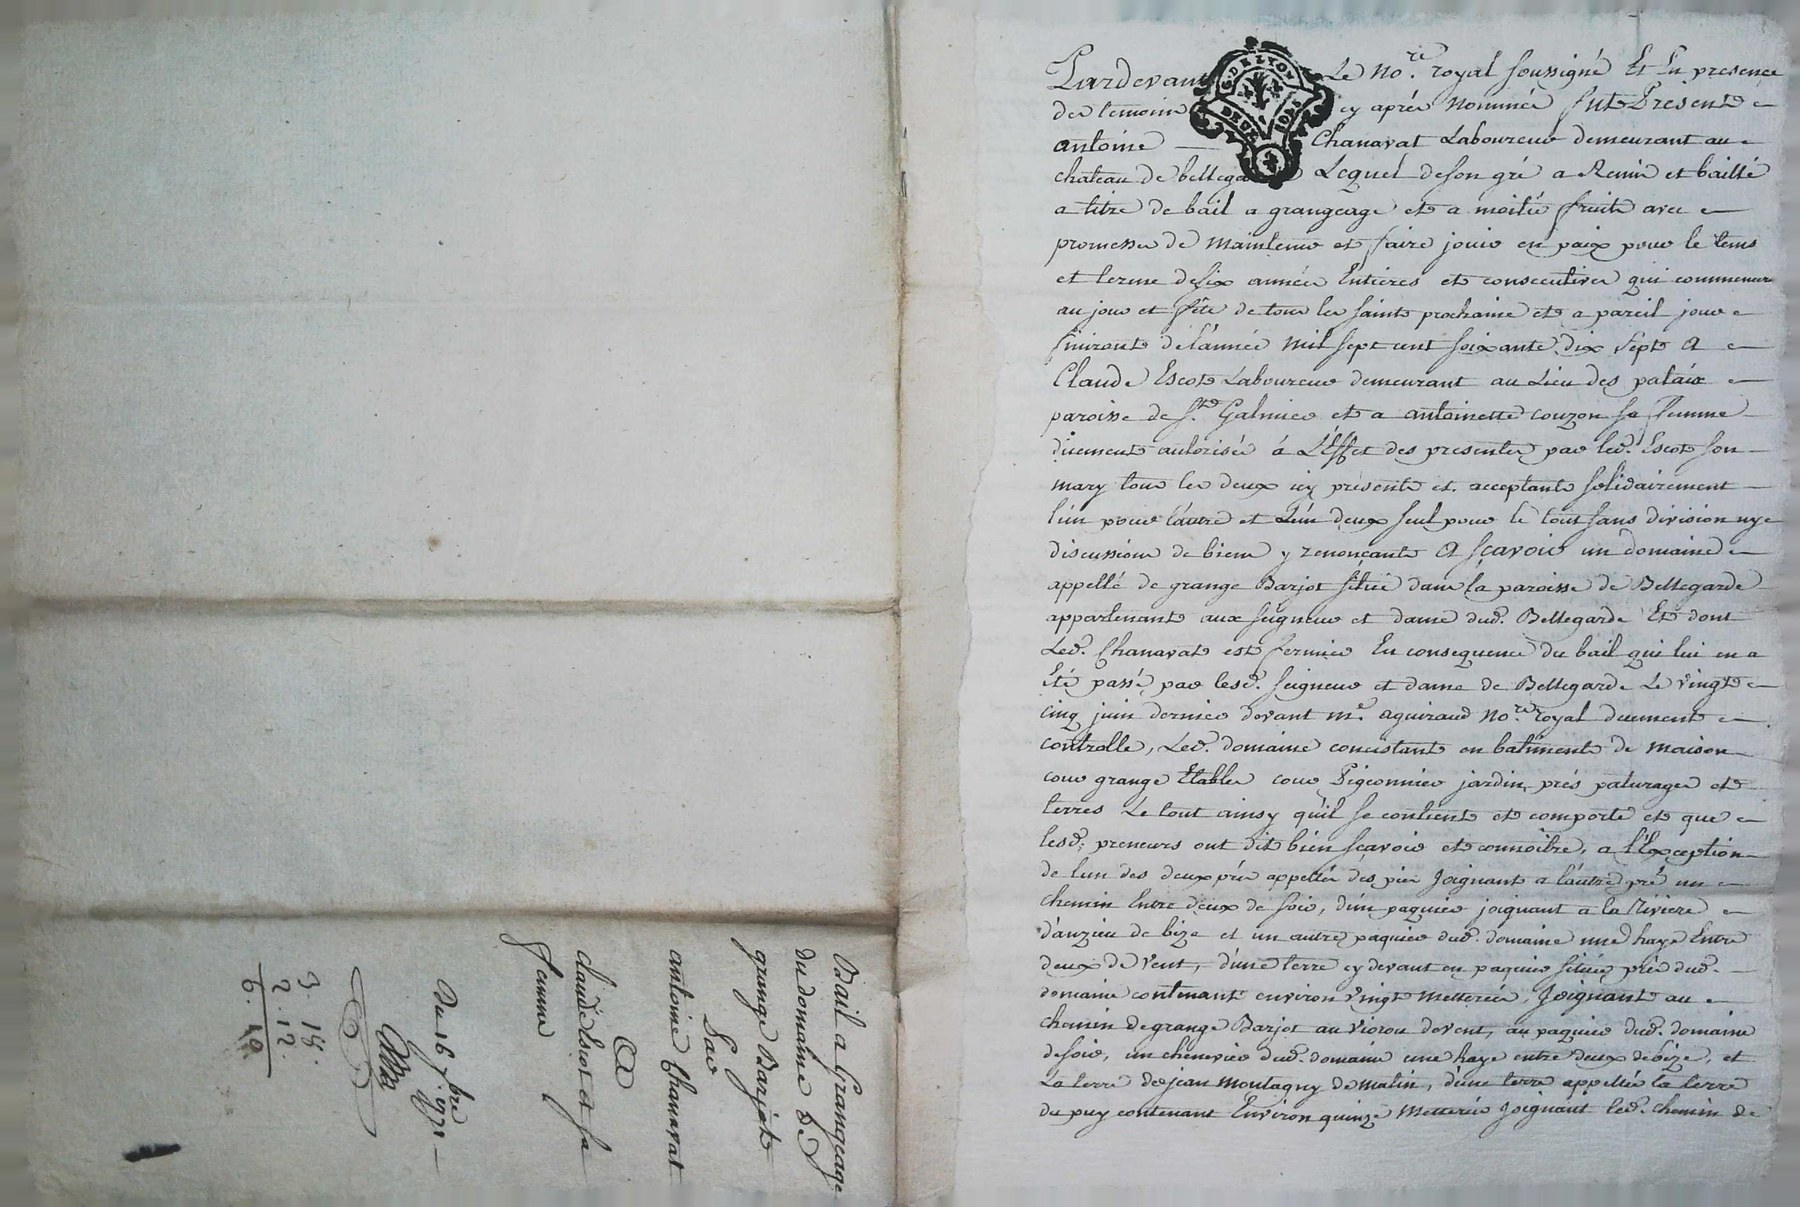 Bail a Grangeage
du domaine de
grange Barjot
Par
antoine Chanavat
A
claude Escot et sa
femme
Du 16 7bre 1771
3. 15.
2. 12.
6.
Pardevant Le no.re royal soussigné Et En presence
des temoins cy aprés nommés fut Present
antoine Chanavat Laboureur demeurant au
chateau de bellegarde Lequel de son gré a Remis et baillé
a titre de bail a grangeage et a moitié fruits avec
promesse de maintenir et faire jouir en paix pour le tems
et terme de six années Entieres et consecutives qui commencera
au jour et fête de tous les saints prochaine et a pareil jour
finiront de l'année mil sept cent soixante dix sept A
Claude Escot Laboureur demeurant au Lieu des palais
paroisse de St. Galmier et a antoinette couzon sa femme
düement autorisée á L'Effet des presentes par led. Escot son
mary tous les deux icy présents et acceptants solidairement
l'un pour l'autre et L'un deux seul pour le tout sans division ny
discussion de biens y renonçants A sçavoir un domaine
appellé de grange Barjot situé dans la paroisse de Bellegarde
appartenant aux seigneur et dame dud. Bellegarde Et dont
Led. Chanavat est fermier En consequence du bail qui lui en a
Eté passé par lesd. seigneur et dame de Bellegarde Le vingt
cinq juin dernier devant me. aguiraud no.re royal duement
controlle, Led. domaine concistant en batiments de maison
cour grange Etables cour Pigeonnier jardin, prés paturages et
terres Le tout ainsy qu'il se contient et comporte et que
lesd. preneurs ont dit bien sçavoir et connoitre, a l'Exception
de l'un des deux prés appellés des pies Joignant a l'autre pré un
chemin Entre deux de soir, d'un paquier joignant a la Riviere
d'anzieu de bize et un autre paquier dud. domaine une haye Entre
deux de vent, d'une terre cy devant en paquier située près dud.
domaine contenant environ vingt metterées, Joignant au
chemin de grange Barjot au viorou de vent, au paquier dud. domaine
de soir, un chenevier dud. domaine une haye entre deux de bize, et
La terre de jean montagny de matin, d'une terre appellée la terre
du puy contenant Environ quinze metterées Joignant led. chemin de